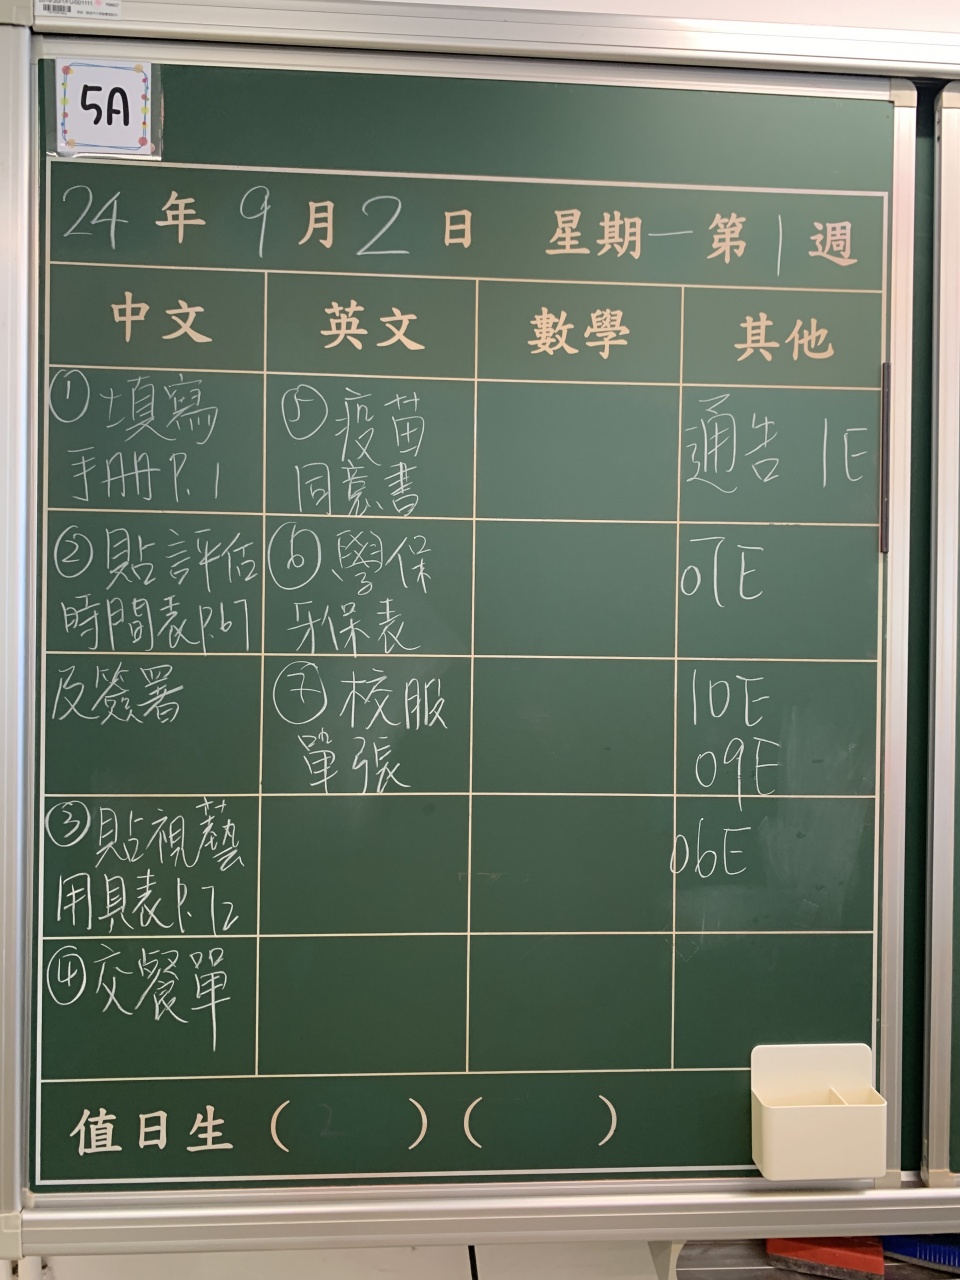 5A
24年9月2日 星期一第1週
中文 英文 數學 其他
①填寫
手冊P.1
②貼評估
時間表P.67
及簽署
③貼視藝
用具表P.72
④交餐單
⑤疫苗
同意書
⑥學保
牙保表
⑦校服
單張
通告 1E
07E
10E
09E
06E
值日生( )( )